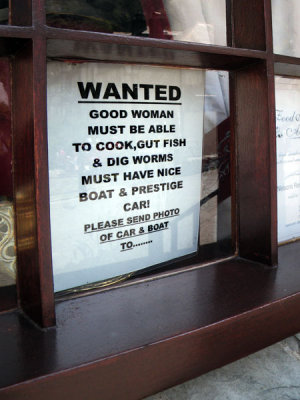 WANTED
GOOD WOMAN
MUST BE ABLE
TO COOK,GUT FISH
& DIG WORMS
MUST HAVE NICE
BOAT & PRESTIGE
CAR!
PLEASE SEND PHOTO
OF CAR & BOAT
TO........